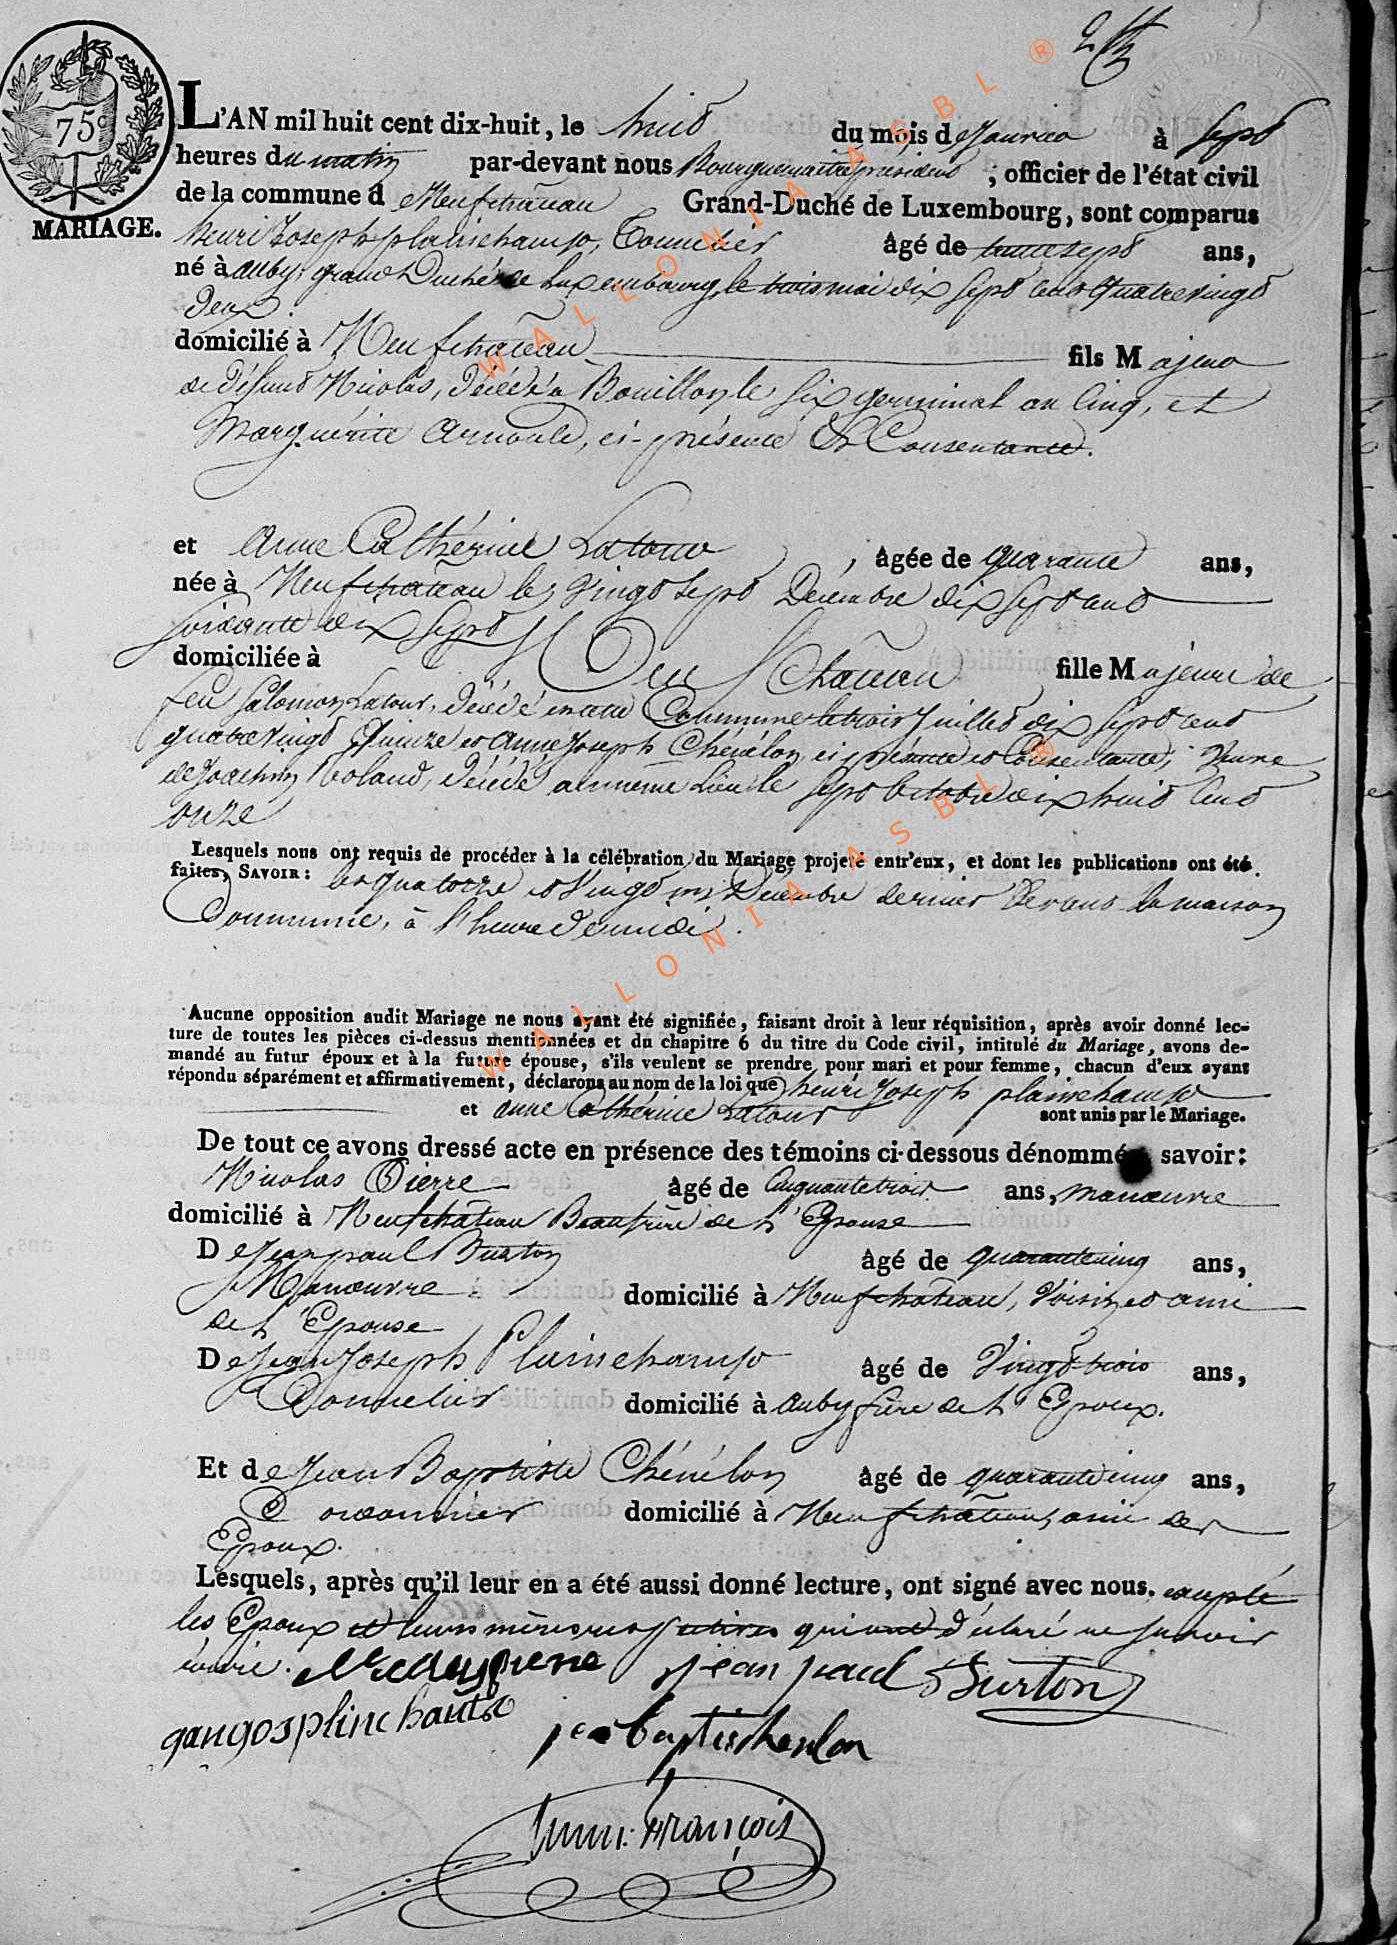 75c
MARIAGE.
L'AN mil huit cent dix-huit, le huid du mois de Janvier à Sept
heures du matin par-devant nous Bourguemaitre président, officier de l'état civil
de la commune d Neufchâteau Grand-Duché de Luxembourg, sont comparus
henri Joseph plainchamp, Tonnelier âgé de trente sept ans,
né à auby, grand Duché de Luxembourg, le trois mai dix Sept cent Quatrevingt
Deux.
domicilié à Neufchâteau fils Majeur
de Défunt Nicolas, Décédé à Bouillon le Six germinal an Cinq, et
Marguérite Arnould, ci-présente Et Consentante.
et Anne Cathérine Latour, âgée de quarante ans,
née à Neufchateau le Vingt Sept Décembre dix Sept cent
Soixante dix Sept
domiciliée à Neufchateau fille Majeure de
feu Salomon Latour, Décédé en cette Commune le trois Juillet dix Sept cent
quatrevingt Quinze et Anne Joseph Chénélon, ci présente et Consentante; Veuve
de Joachim Roland, Décédé, au même Lieu le Sept Octobre dix huit Cent
onze
Lesquels nous ont requis de procéder à la célébration du Mariage projeté entr'eux, et dont les publications ont été
faites, SAVOIR: les quatorze et Vingt un Décembre dernier Devant la maison
Commune, à l'heure de midi.
Aucune opposition audit Mariage ne nous ayant été signifiée, faisant droit à leur réquisition, après avoir donné lec-
ture de toutes les pièces ci-dessus mentionnées et du chapitre 6 du titre du Code civil, intitulé du Mariage, avons de-
mandé au futur époux et à la future épouse, s'ils veulent se prendre pour mari et pour femme, chacun d'eux ayant
répondu séparément et affirmativement, déclarons au nom de la loi que henri Joseph plainchamp
et anne Cathérine Latour sont unis par le Mariage.
De tout ce avons dressé acte en présence des témoins ci-dessous dénommés savoir:
Nicolas Pierre âgé de Cinquante trois ans, manœuvre
domicilié à Neufchâteau Beaufrère de L'Epouse
De Jean paul Burton âgé de quarante cinq ans,
Manœuvre domicilié à Neufchateau, Voisin et ami
de L'Epouse
De Jean Joseph Plainchamp âgé de Vingt-trois ans,
Tonnelier domicilié à auby frère de L'Epoux.
Et de Jean Baptiste Chénélon âgé de quarante cinq ans,
Cordonnier domicilié à Neufchâteau, ami des
Epoux.
Lesquels, après qu'il leur en a été aussi donné lecture, ont signé avec nous. excepté
les Epoux et leurs mères respectives qui ont déclaré ne Savoir
écrire. jean paul Burton
gangosplinchant
François
WALLONIA ASBL ®
WALLONIA ASBL ®